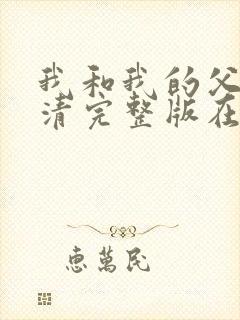 我和我的父
清完整版在
惠萬民